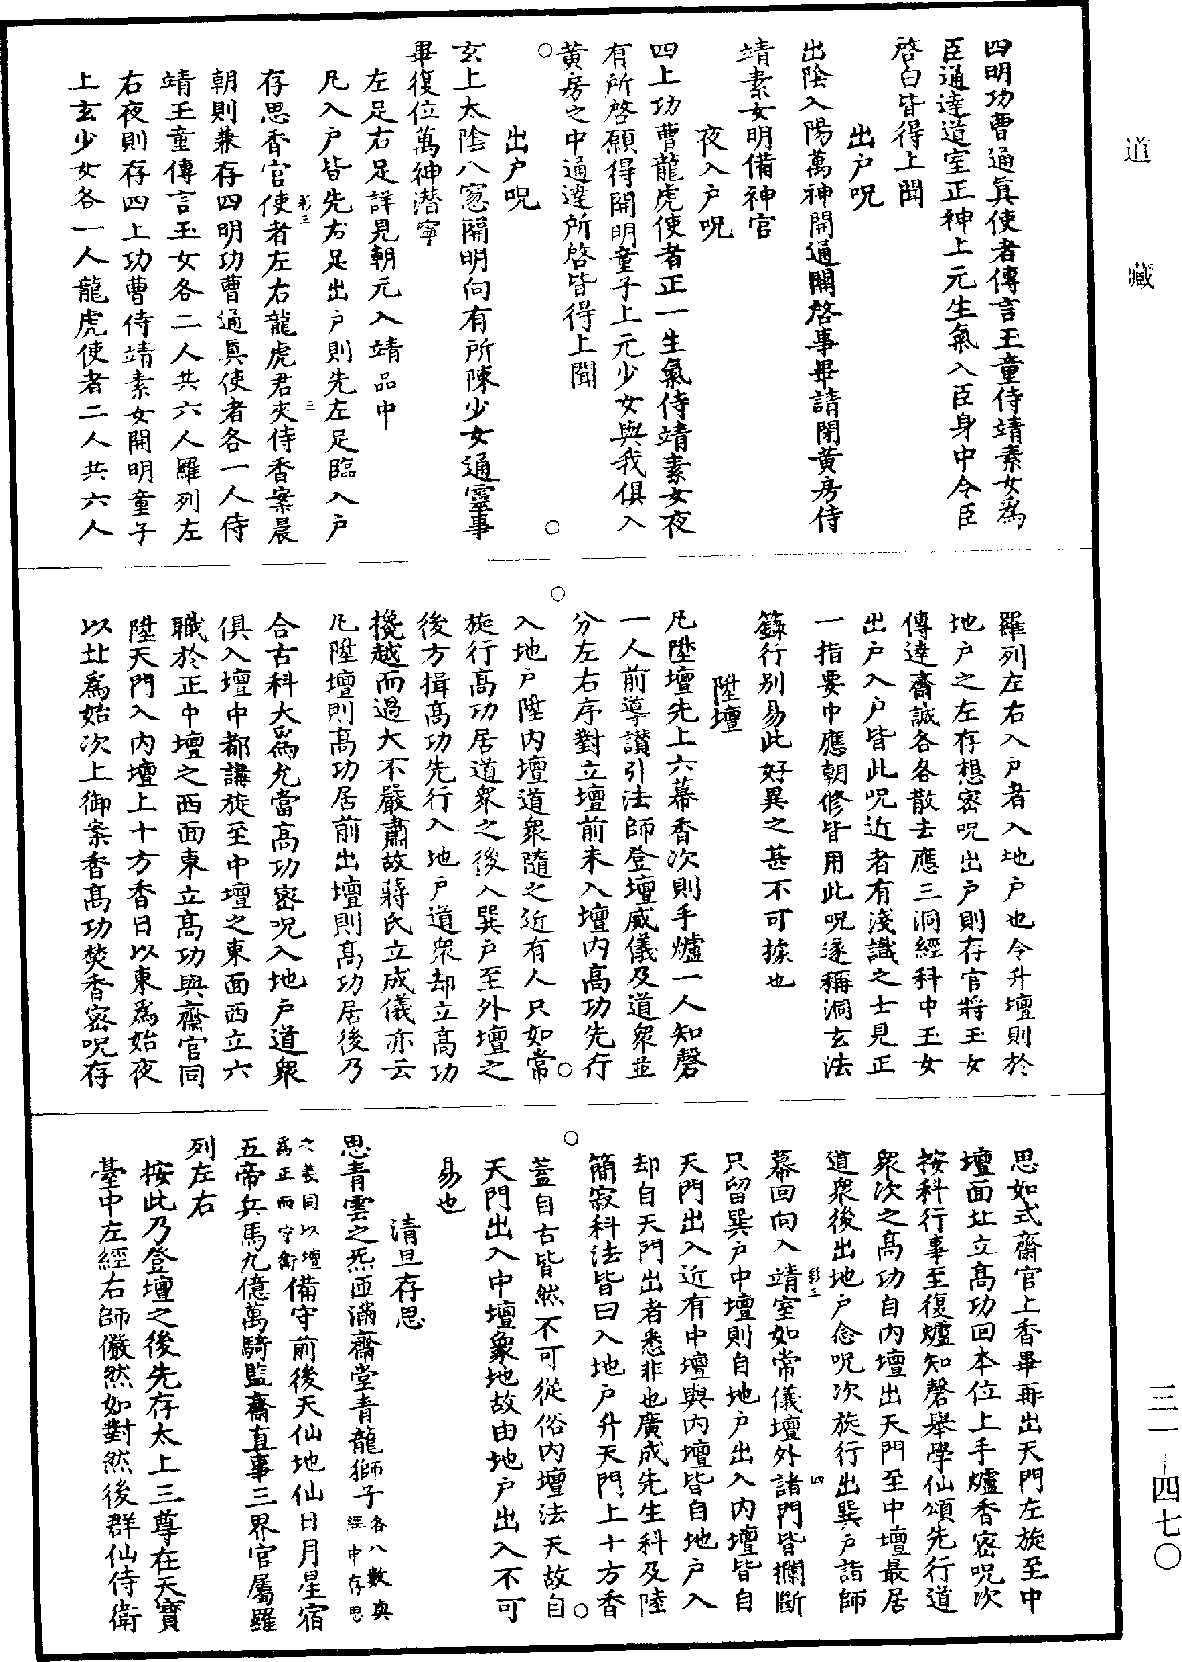 道藏
四明功曹通真使者傳言玉童侍靖素女爲
臣通達道室正神上元生氣入臣身中令臣
啓白皆得上聞
出戶呪
出陰入陽萬神開通關啓事畢請閉黃房侍
靖素女明備神官
夜入戶呪
四上功曹龍虎使者正一生氣侍靖素女夜
有所啓願得開明童子上元少女與我俱入
黃房之中通達所啓皆得上聞
出戶呪
玄上太陰八窓開明向有所陳少女通靈事
畢復位萬神潛寧
左足右足詳見朝元入靖品中
凡入戶皆先右足出戶則先左足臨入戶
存思香官使者左右龍虎君夾侍香案晨
朝則兼存四明功曹通真使者各一人侍
靖玉童傳言玉女各二人共六人羅列左
右夜則存四上功曹侍靖素女開明童子
上玄少女各一人龍虎使者二人共六人
羅列左右入戶者入地戶也今升壇則於
地戶之左存想密呪出戶則存官將玉女
傳達齋誠各各散去應三洞經科中玉女
出戶入戶皆此呪近者有淺識之士見正
一指要中應朝修皆用此呪遂稱洞玄法
籙行别易此好異之甚不可據也
陞壇
凡陞壇先上六幕香次則手爐一人知磬
一人前導讚引法師登壇威儀及道眾並
分左右序對立壇前未入壇内高功先行
入地戶陞内壇道眾隨之近有人只如常
旋行高功居道眾之後入巽戶至外壇之
後方揖高功先行入地戶道眾却立高功
攙越而過大不嚴肅故蔣氏立成儀亦云
凡陞壇則高功居前出壇則高功居後乃
合古科大爲允當高功密呪入地戶道眾
俱入壇中都講旋至中壇之東面西立六
職於正中壇之西面東立高功與齋官同
陞天門入内壇上十方香日以東爲始夜
以北爲始次上御案香高功焚香密呪存
思如式齋官上香畢再出天門左旋至中
壇面北立高功回本位上手爐香密呪次
按科行事至復爐知磬舉學仙頌先行道
衆次之高功自内壇出天門至中壇最居
道衆後出地戶念呪次旋行出巽戶詣師
幕回向入靖室如常儀壇外諸門皆攔斷
只留巽戶中壇則自地戶出入内壇皆自
天門出入近有中壇與内壇皆自地戶入
却自天門出者悉非也廣成先生科及陸
簡寂科法皆曰入地戶升天門上十方香
蓋自古皆然不可從俗内壇法天故自
天門出入中壇象地故由地戶出入不可
易也
清旦存思
思青雲之炁匝滿齋堂青龍獅子各八數與經中存思
之義同以壇爲正而守衞備守前後天仙地仙日月星宿
五帝兵馬九億萬騎監齋直事三界官屬羅
列左右
按此乃登壇之後先存太上三尊在天寶
臺中左經右師儼然如對然後群仙侍衛
三一—四七〇